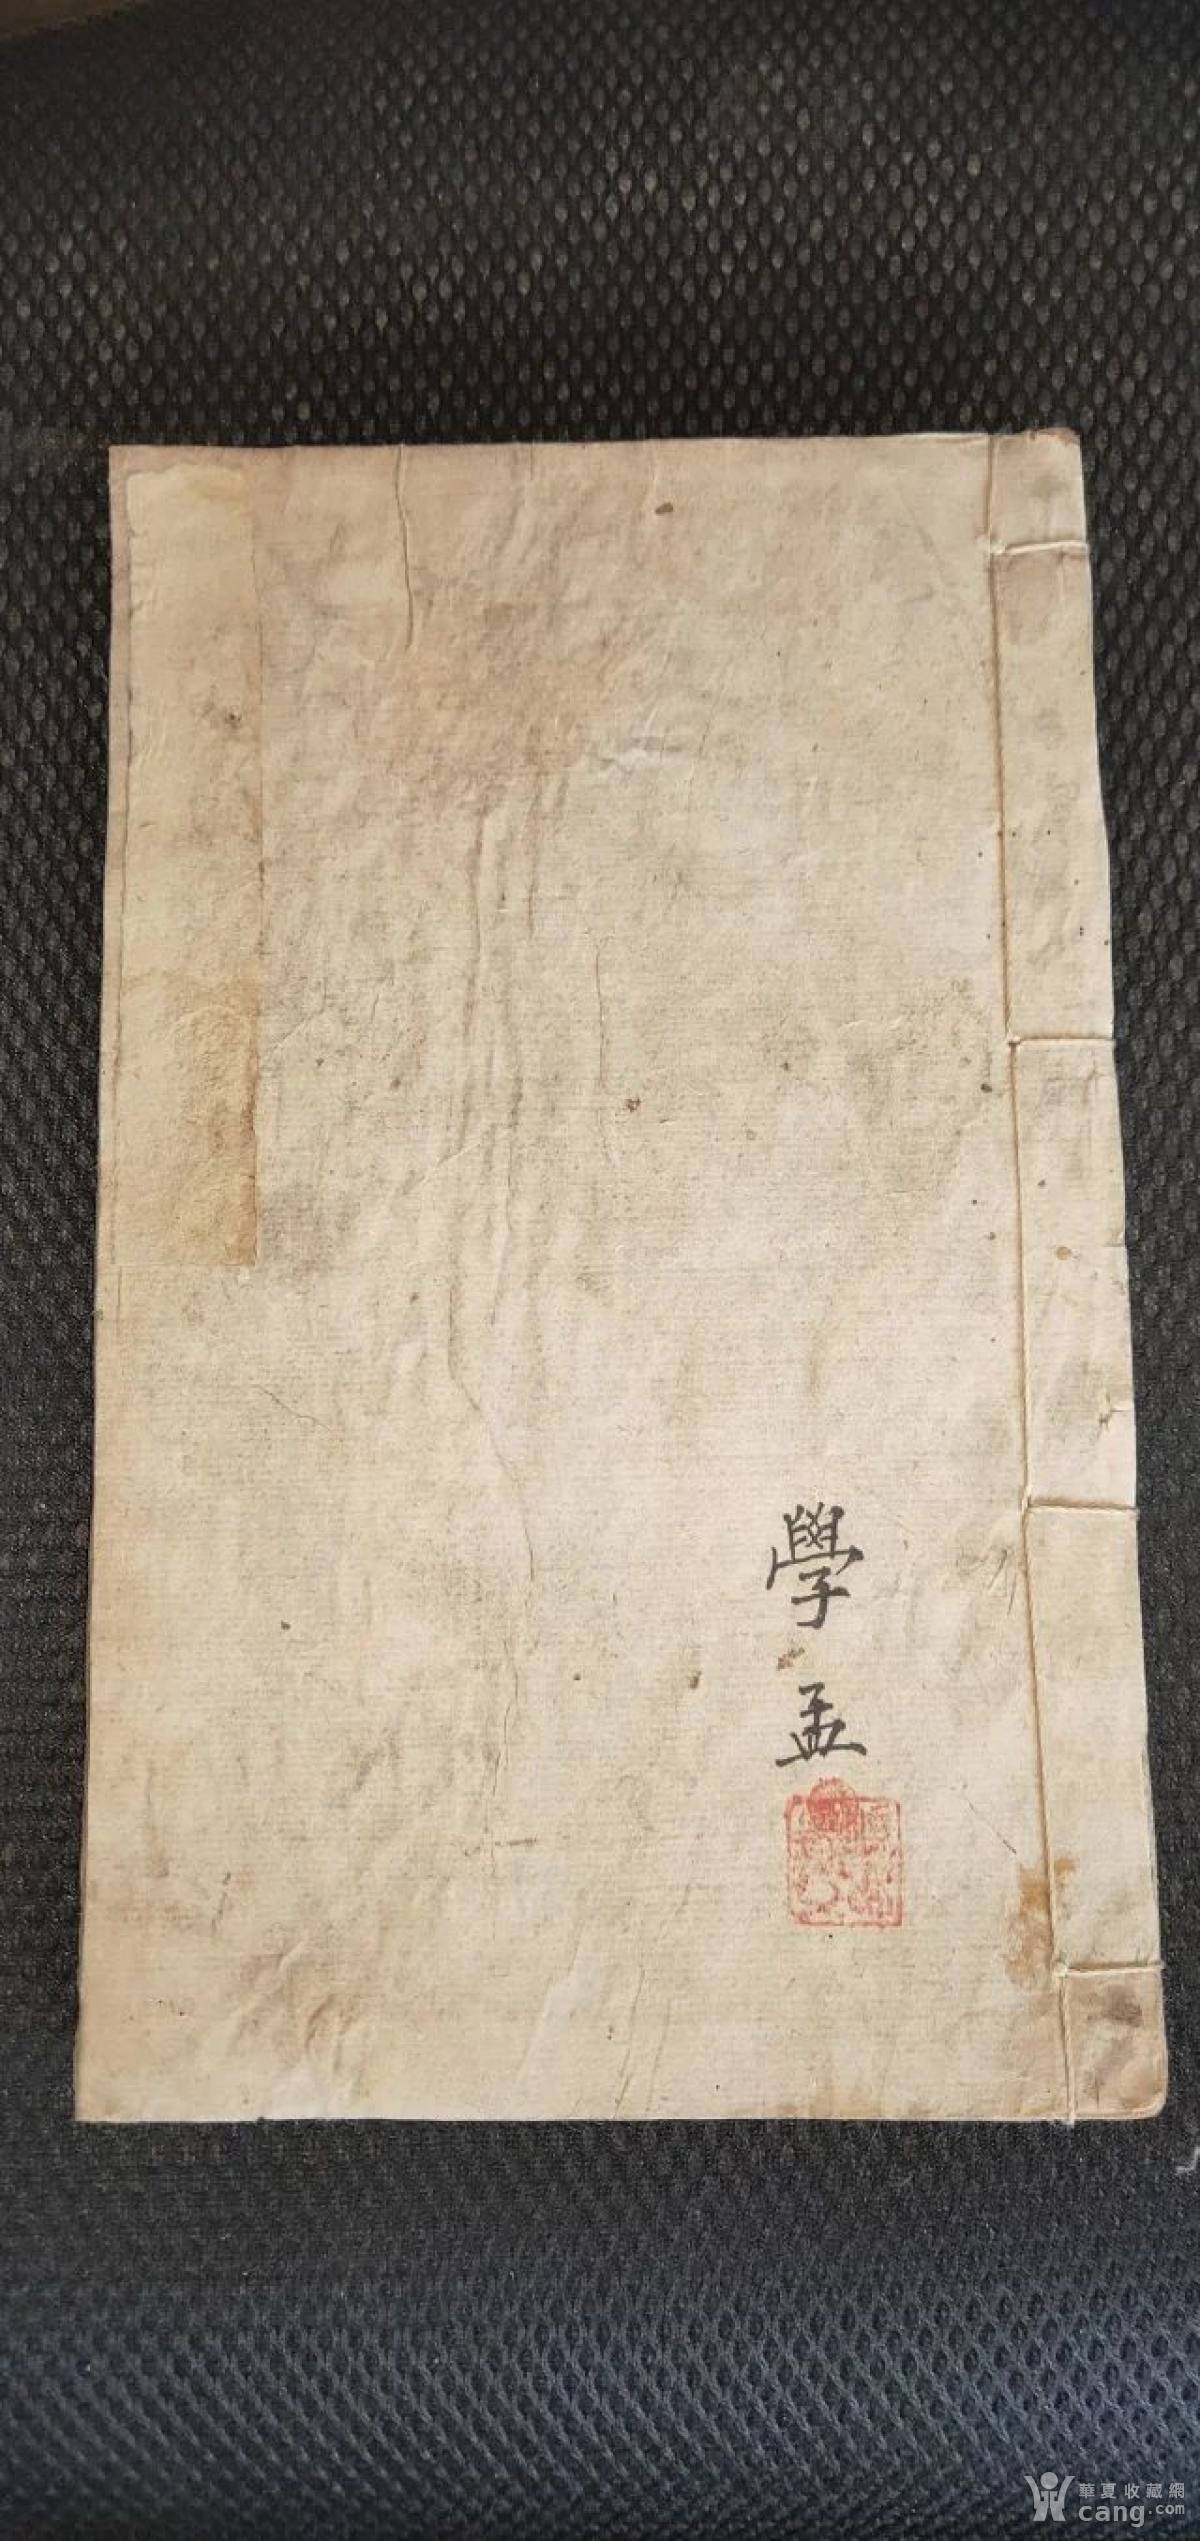 學
孟
華夏收藏網
cang.com